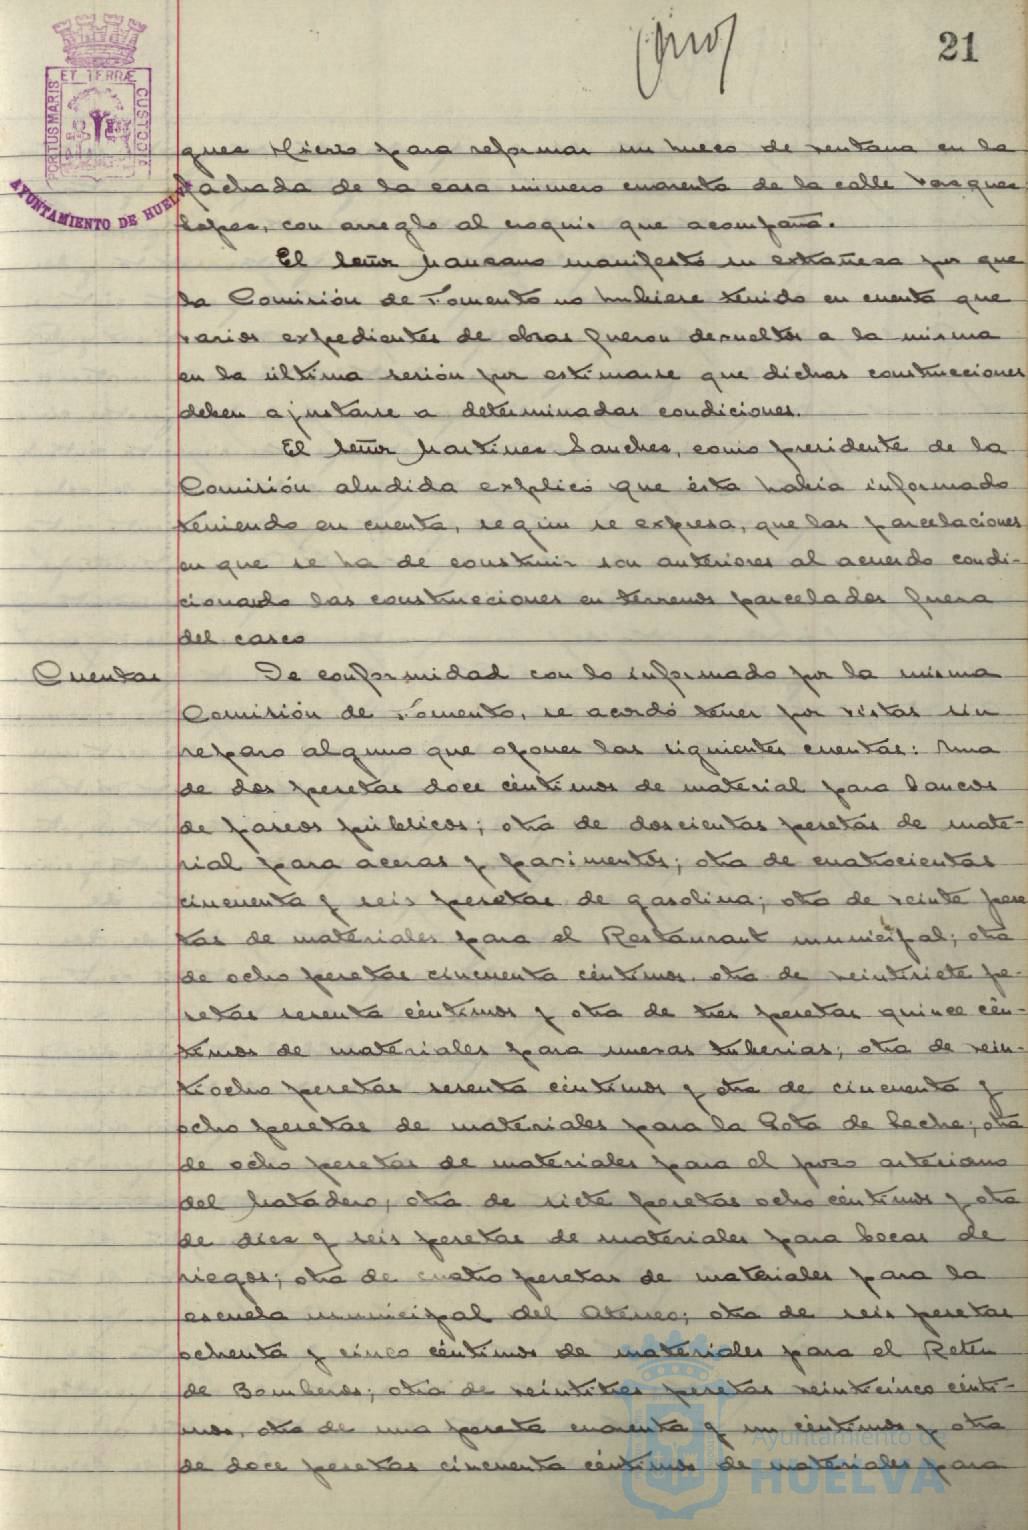 21
PORTUS MARIS
ET TERRÆ
CUSTODIA
AYUNTAMIENTO DE HUELVA
quez Hierro para reformar un hueco de ventana en la
fachada de la casa número cuarenta de la calle Vazquez
Lopez, con arreglo al croquis que acompaña.
El Señor Manzano manifestó su extrañeza por que
la Comisión de Fomento no hubiese tenido en cuenta que
varios expedientes de obras fueron devueltos a la misma
en la última sesión por estimarse que dichas construcciones
deben ajustarse a determinadas condiciones.
El Señor Martinez Sanchez, como presidente de la
Comisión aludida explicó que ésta habia informado
teniendo en cuenta, según se expresa, que las parcelaciones
en que se ha de construir son anteriores al acuerdo condi-
cionando las construcciones en terrenos parcelados fuera
del casco
Cuentas
De conformidad con lo informado por la misma
Comisión de Fomento, se acordó tener por vistas sin
reparo alguno que oponer las siguientes cuentas: una
de dos pesetas doce céntimos de material para bancos
de paseos públicos; otra de doscientas pesetas de mate-
rial para aceras y pavimentos; otra de cuatrocientas
cincuenta y seis pesetas de gasolina; otra de veinte pese
tas de materiales para el Restaurant municipal; otra
de ocho pesetas cincuenta céntimos, otra de veintisiete pe-
setas sesenta céntimos y otra de tres pesetas quince cén-
timos de materiales para nuevas tuberias; otra de vein-
tiocho pesetas sesenta céntimos y otra de cincuenta y
ocho pesetas de materiales para la Gota de Leche; otra
de ocho pesetas de materiales para el pozo artesiano
del Matadero; otra de siete pesetas ocho céntimos y otra
de diez y seis pesetas de materiales para bocas de
riegos; otra de cuatro pesetas de materiales para la
escuela municipal del Ateneo; otra de seis pesetas
ochenta y cinco céntimos de materiales para el Reten
de Bomberos; otra de veintitres pesetas veinticinco cénti-
mos, otra de una peseta cuarenta y un céntimos y otra
de doce pesetas cincuenta céntimos de materiales para
Ayuntamiento de
HUELVA